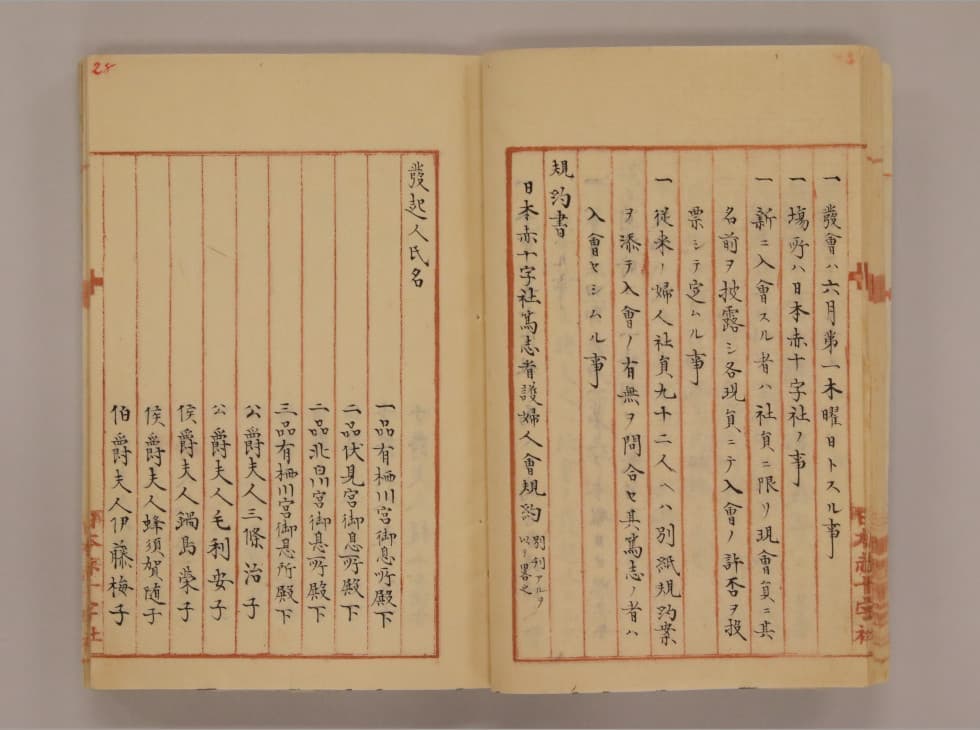 一 發會ハ六月第一木曜日トスル事
一 塲所ハ日本赤十字社ノ事
一 新ニ入會スル者ハ社員ニ限リ現會員ニ其
名前ヲ披露シ各現員ニテ入會ノ許否ヲ投
票シテ定ムル事
一 従来ノ婦人社員九十二人ヘハ別紙規約案
ヲ添テ入會ノ有無ヲ問合セ其篤志ノ者ハ
入會セシムル事
規約書
日本赤十字社篤志看護婦人會規約 別刊アルヲ
以テ畧之
發起人氏名
一品有栖川宮御息所殿下
二品伏見宮御息所殿下
二品北白川宮御息所殿下
三品有栖川宮御息所殿下
公爵夫人三條治子
公爵夫人毛利安子
侯爵夫人鍋島榮子
侯爵夫人蜂須賀随子
伯爵夫人伊藤梅子
28
日本赤十字社